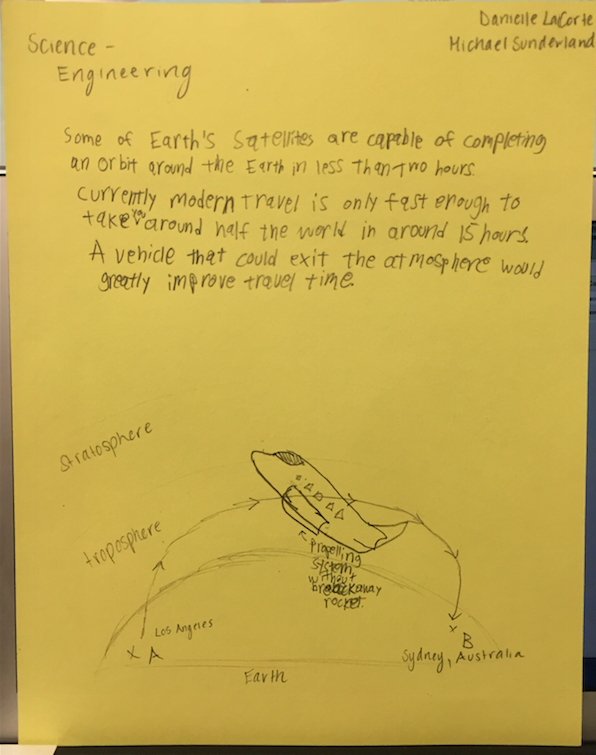 Danielle LaCorte
Michael Sunderland
Science -
Engineering
Some of Earth's Satellites are capable of completing
an orbit around the Earth in less than two hours.
Currently modern travel is only fast enough to
take you around half the world in around 15 hours.
A vehicle that could exit the atmosphere would
greatly improve travel time.
stratosphere
troposphere
propelling
system,
without
breakaway
rocket.
Los Angeles
X A
x B
Sydney, Australia
Earth